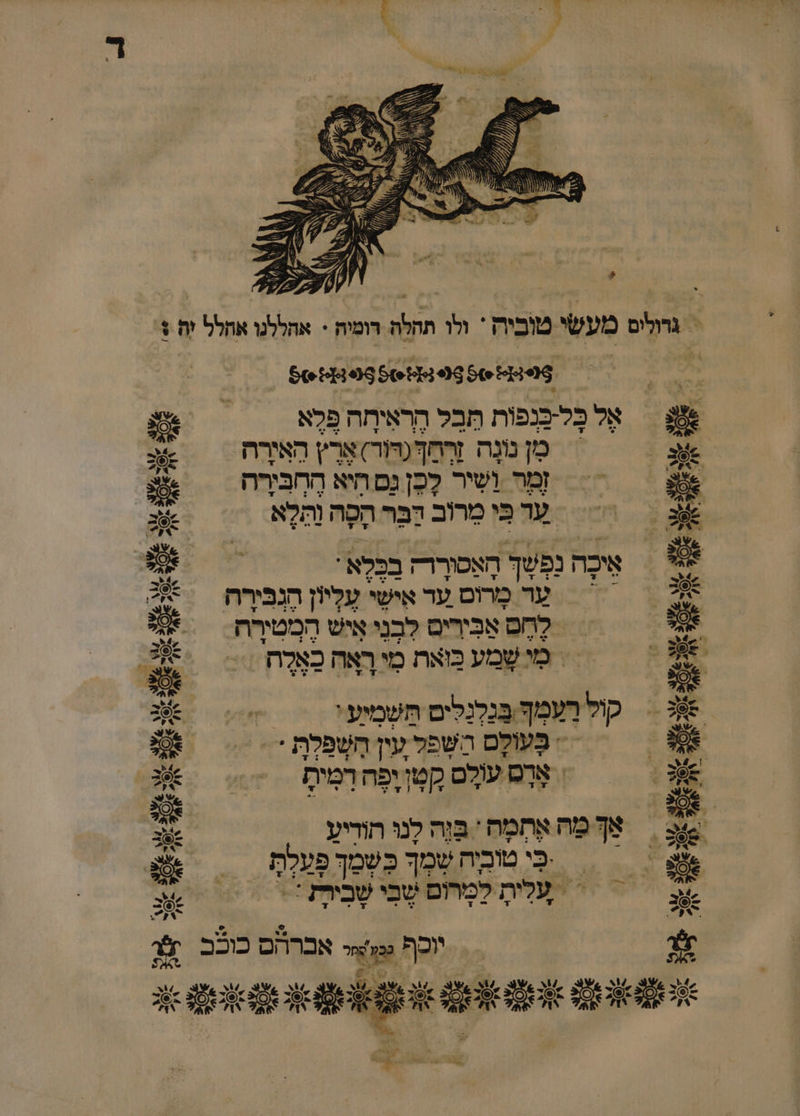 ד
גדולים מעשי טוביה · ולו תהלה דומיה · אהללנו אחלל יה :
אל כָל־כַנפות תבל הראיתה פלא
מִן נוגה זרחך (דוד) ארץ האירה
זמר ושיר לכן גם היא החבירה
עד כי מרוב דבר הסה ותלא
איכה נפשך האסורה בכלא ·
עד מרום עד אישי עליון הגבירה
לחם אבירים לבני איש המטירה
מי שמע כזאת מי ראה כאלה
קול רעמך בגלגלים תשמיע ·
בעולם השפל עין השפלת ·
אדם עולם קטן יפה דמית
אך מה אתמה · בזה לנו תודיע
כי טוביה שמך כשמך פעלת
עלית למרום שבי שבית ·
יוסף אברהם כוכב